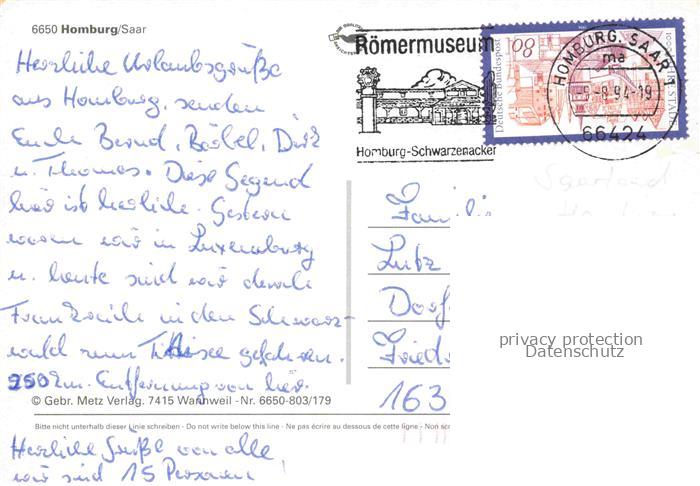 6650 Homburg/Saar
Herzliche Urlaubsgrüße
aus Homburg, senden
Euch Bernd, Bärbel, Dirk
u. Thomas. Diese Gegend
hier ist herrlich. Gestern
waren wir in Luxemburg
u. heute sind wir durch
Frankreich in den Schwarz-
wald zum Titisee gefahren.
250 km. Entfernung von hier.
© Gebr. Metz Verlag. 7415 Wannweil - Nr. 6650-803/179
Bitte nicht unterhalb dieser Linie schreiben - Do not write below this line - Ne pas écrire au dessous de cette ligne - Non sc
Herzliche Grüße von alle
wir sind 15 Personen!
Römermuseum
Homburg-Schwarzenacker
Deutsche Bundespost
80
HOMBURG, SAAR 1
ma
-8.94-19
66424
Saarland
Famili
Lutz
Dorf
Fried
163
privacy protection
Datenschutz